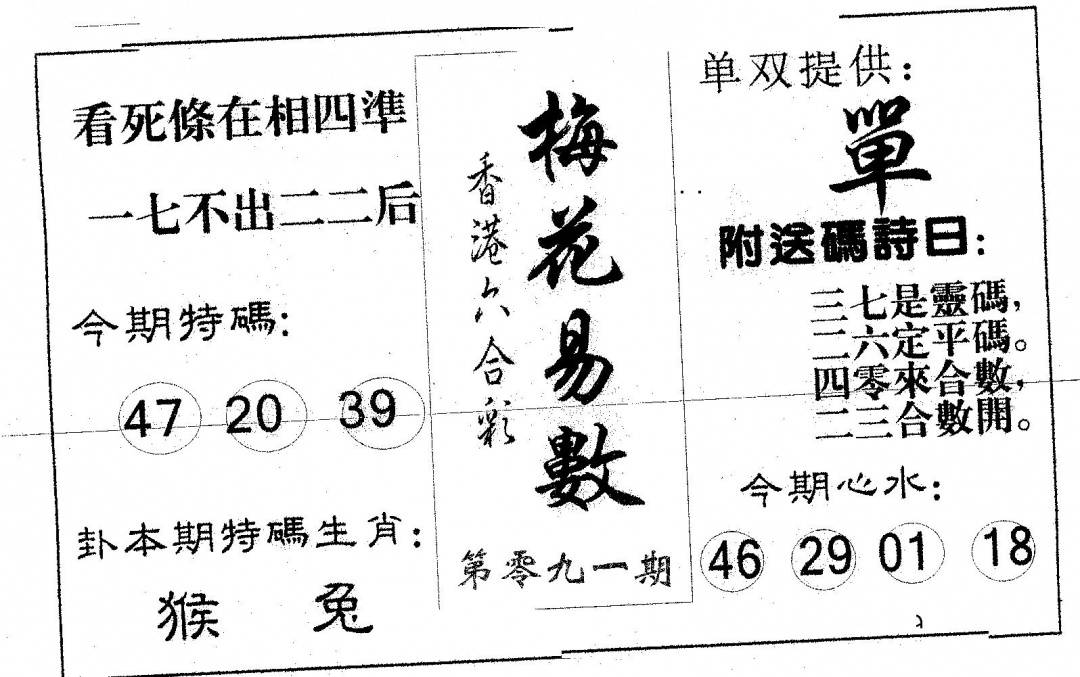 看死條在相四準
一七不出二二后
今期特碼:
47 20 39
卦本期特碼生肖:
猴 兔
梅花易數
香港六合彩
第零九一期
单双提供:
單
附送碼詩曰:
三七是靈碼,
二六定平碼。
四零來合數,
二三合數開。
今期心水:
46 29 01 18